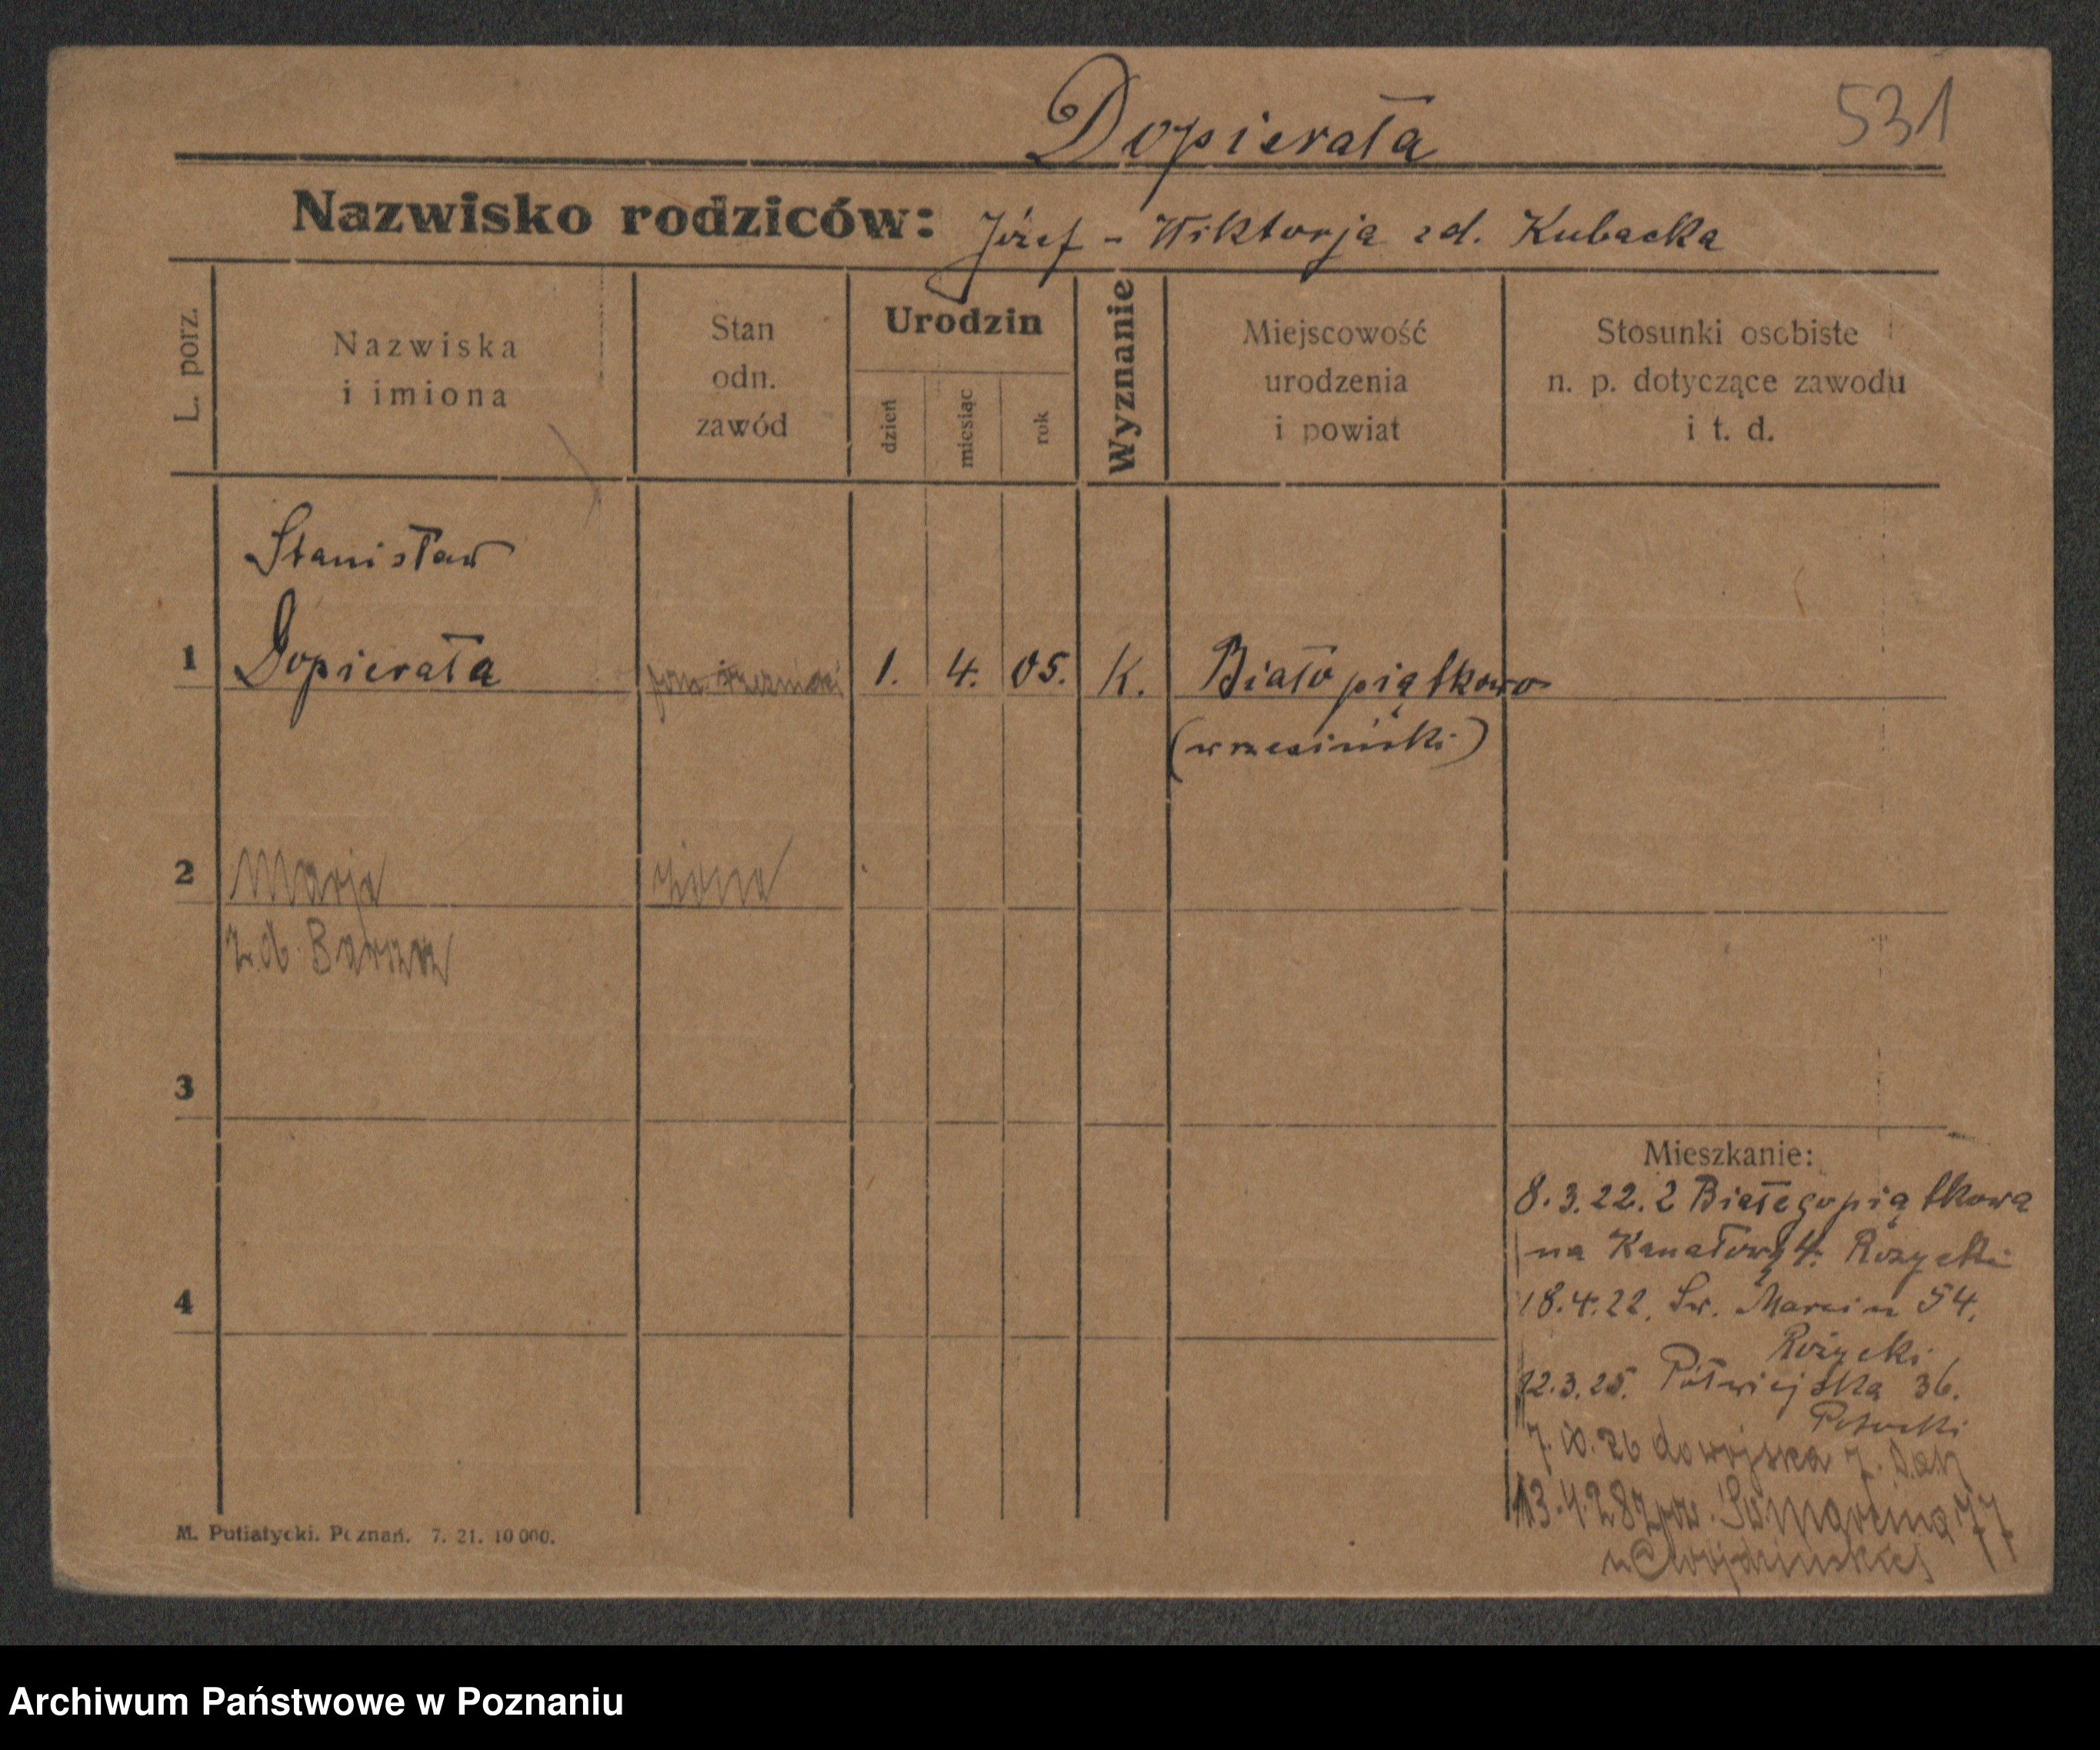 Dopierała
531
Nazwisko rodziców: Józef - Wiktorja zd. Kubacka
L. porz.
Nazwiska
i imiona
Stan
odn.
zawód
Urodzin
dzień
miesiąc
rok
Wyznanie
Miejscowość
urodzenia
i powiat
Stosunki osobiste
n. p. dotyczące zawodu
i t. d.
Stanisław
1 Dopierała 1. 4. 05. K. Białopiątkowo
(wrzesiński)
2 Marja żona
z d.
3
4
Mieszkanie:
8.3.22. z Białegopiątkowa
na Kanałową 4. Rożycki
18.4.22. Św. Marcin 54.
Rożycki
12.3.25. Półwiejska 36.
do wojska 7.
13.4.28 Marcina 77
M. Putiatycki. Poznań. 7. 21. 10 000.
Archiwum Państwowe w Poznaniu